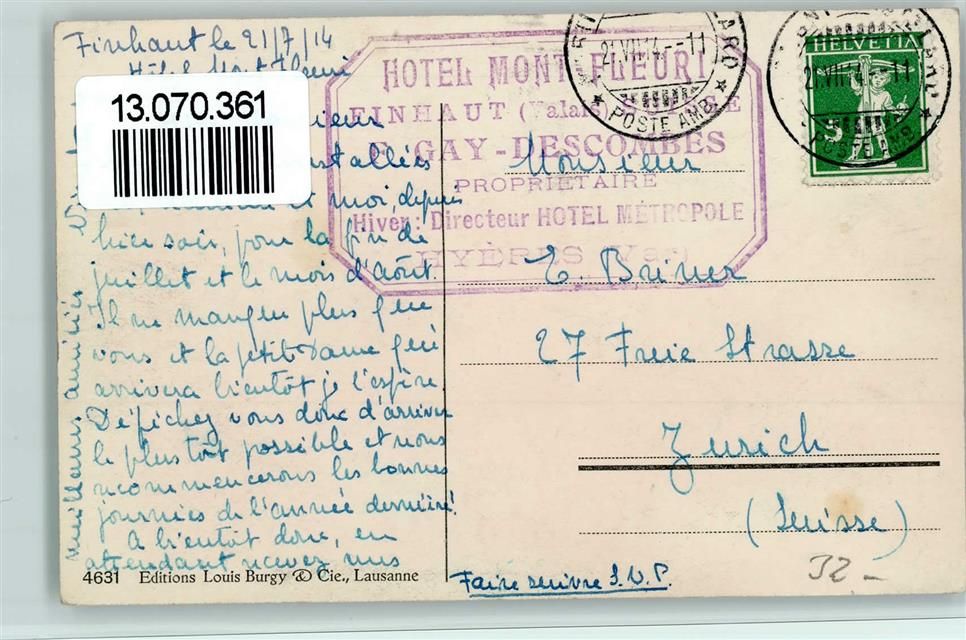 Finhaut le 21/7/14
Hôtel Mont Fleuri
13.070.361
et moi, depuis
hier soir, pour la fin de
juillet et le mois d'août.
Il ne manque plus que
vous et la petite Dame qui
arrivera bientôt je l'espère.
Dépêchez vous donc d'arriver
le plus tôt possible et nous
recommencerons les bonnes
journées de l'année dernière.
A bientôt donc, en
attendant recevez mes
meilleures amitiés
4631 Editions Louis Burgy & Cie., Lausanne
HOTEL MONT-FLEURI
FINHAUT (Valais) SUISSE
GAY-DESCOMBES
PROPRIÉTAIRE
Hiver: Directeur HOTEL MÉTROPOLE
HYÈRES (Var)
21.VII.14.-11
POSTE AMB.
HELVETIA
5
Monsieur
E. Briner
27 Freie Strasse
Zurich
(Suisse)
Faire suivre S.V.P.
32-